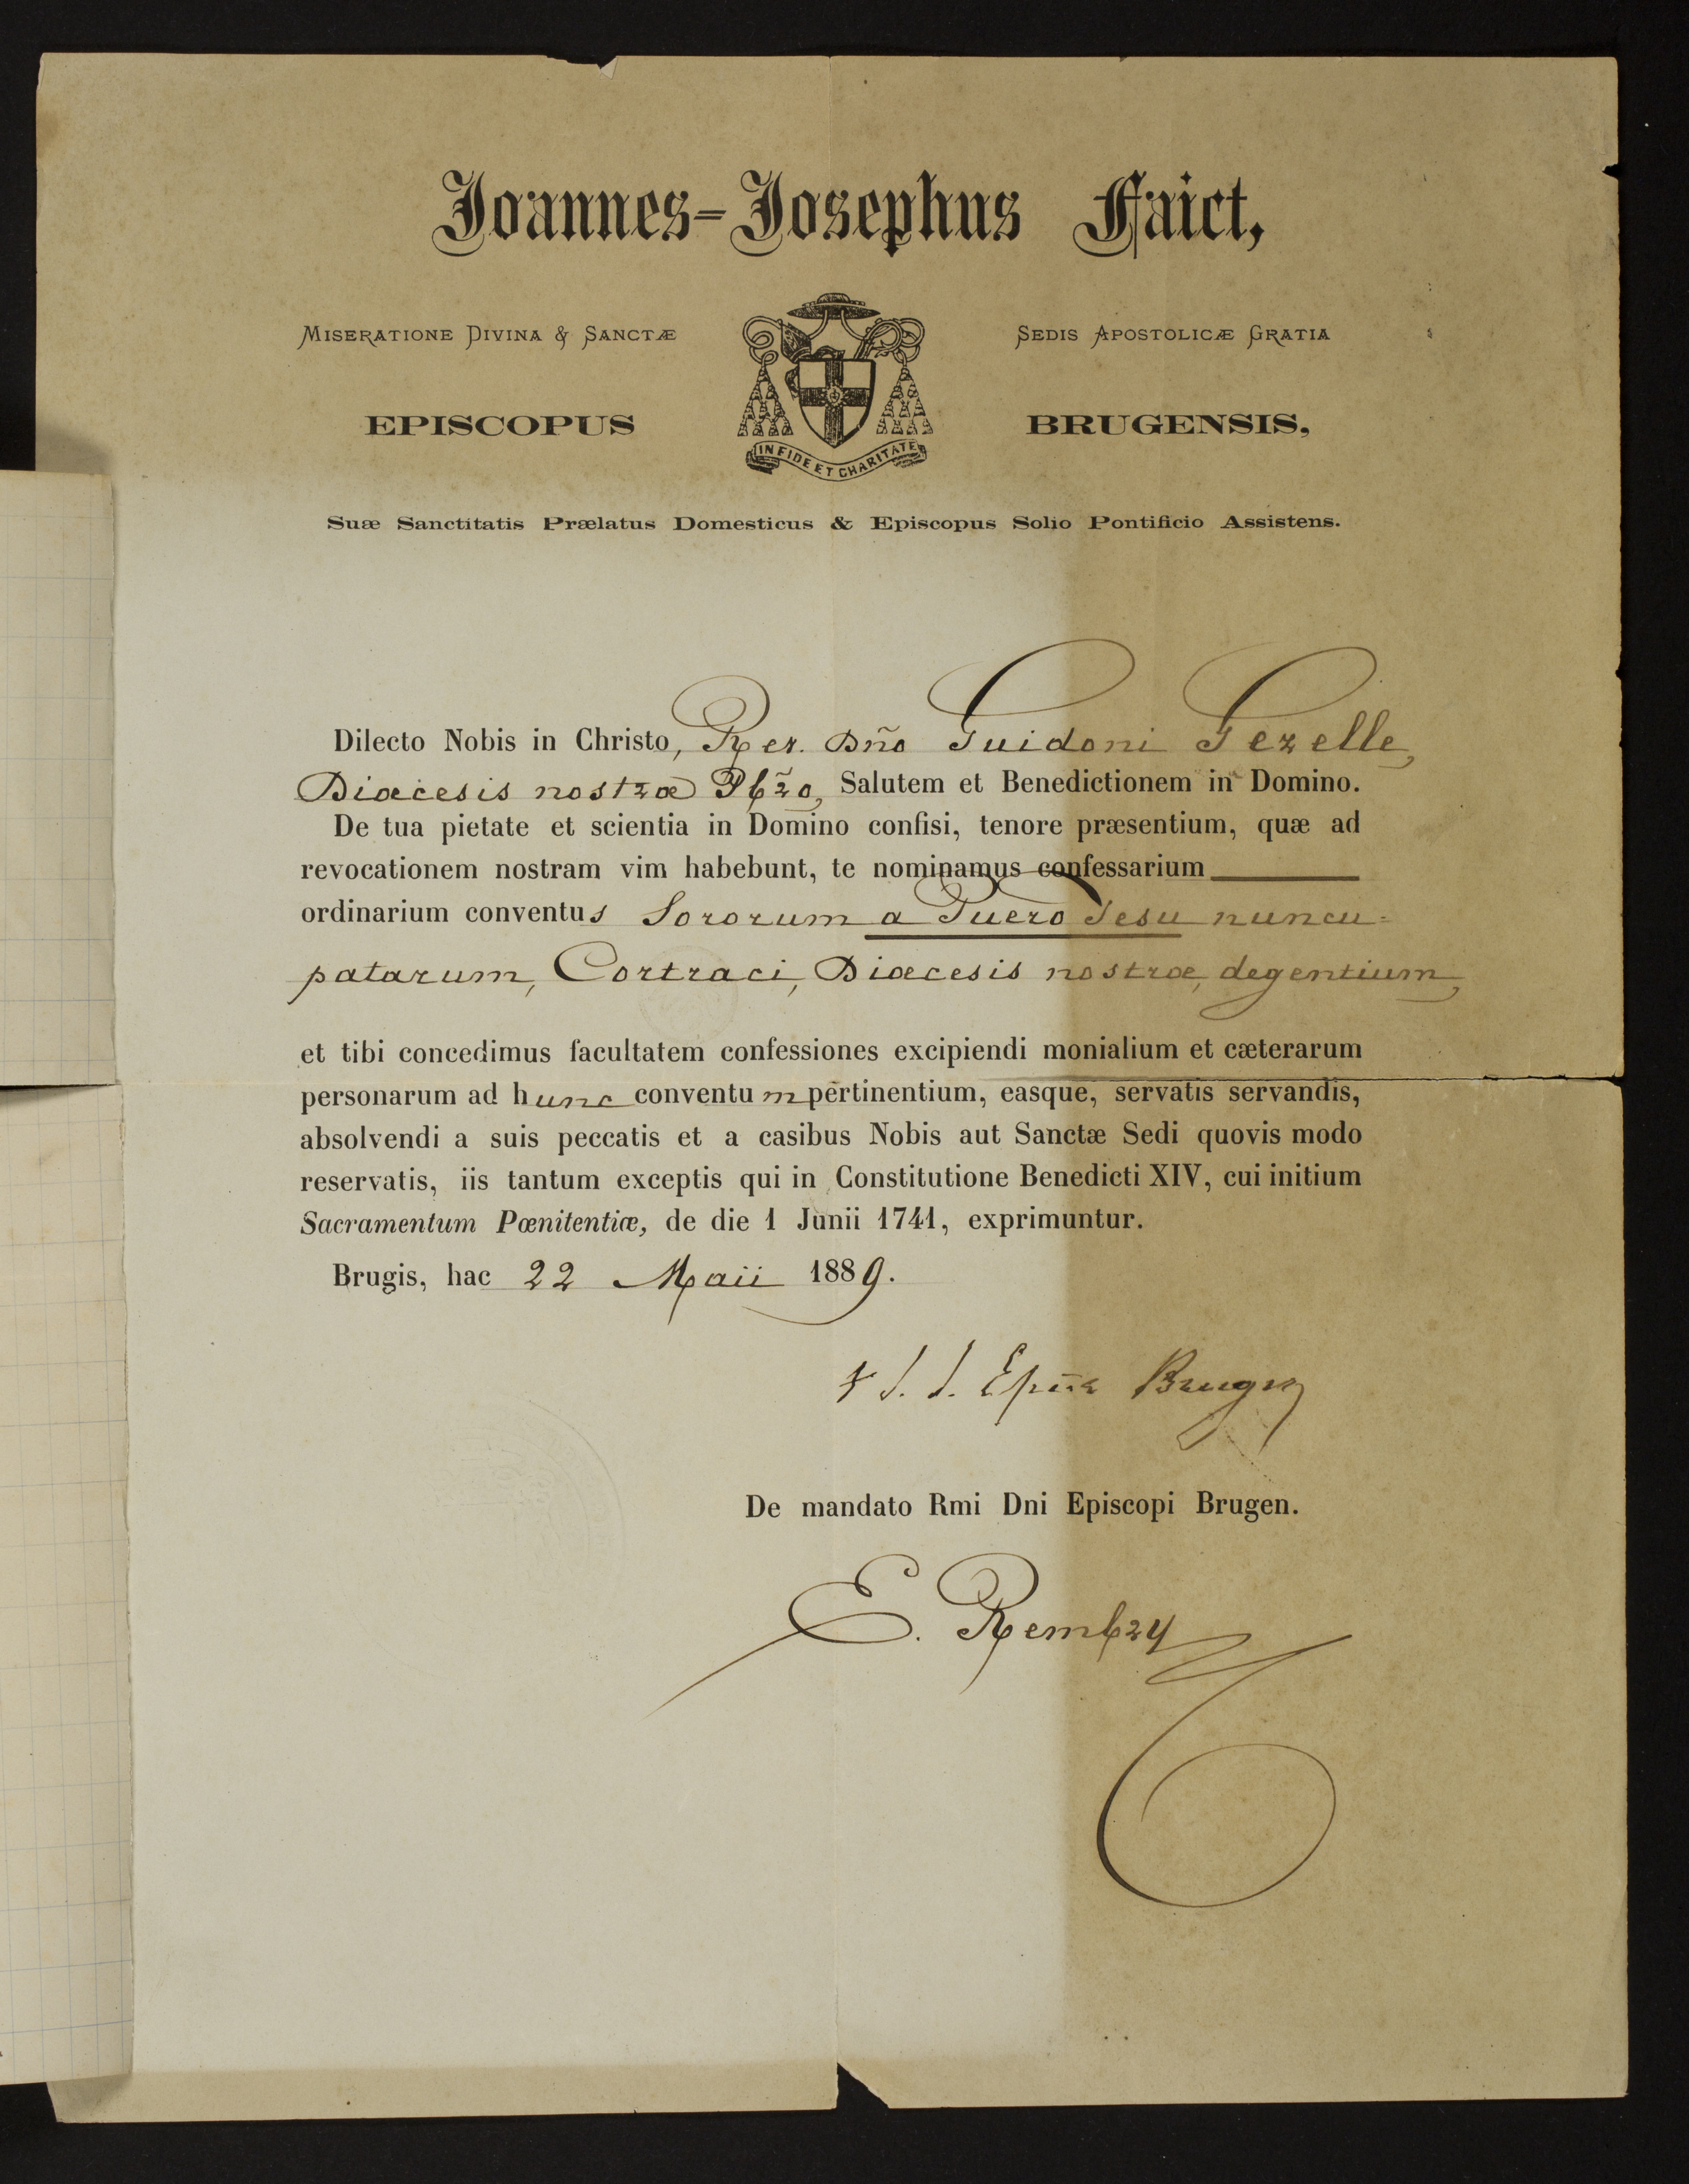 Joannes-Josephus Faict,
Miseratione Divina & Sanctæ Sedis Apostolicæ Gratia
EPISCOPUS BRUGENSIS,
IN FIDE ET CHARITATE
Suæ Sanctitatis Prælatus Domesticus & Episcopus Solio Pontificio Assistens.
Dilecto Nobis in Christo, Rev. Dño Guidoni Gezelle,
Diœcesis nostræ Pbr̃o, Salutem et Benedictionem in Domino.
De tua pietate et scientia in Domino confisi, tenore præsentium, quæ ad
revocationem nostram vim habebunt, te nominamus confessarium
ordinarium conventus Sororum a Puero Jesu nuncu=
patarum, Cortraci, Diœcesis nostræ, degentium,
et tibi concedimus facultatem confessiones excipiendi monialium et cæterarum
personarum ad hunc conventum pertinentium, easque, servatis servandis,
absolvendi a suis peccatis et a casibus Nobis aut Sanctæ Sedi quovis modo
reservatis, iis tantum exceptis qui in Constitutione Benedicti XIV, cui initium
Sacramentum Pœnitentiæ, de die 1 Junii 1741, exprimuntur.
Brugis, hac 22 Maii 1889.
† J. J. Epũs Brugen
De mandato Rmi Dni Episcopi Brugen.
E. Rembry